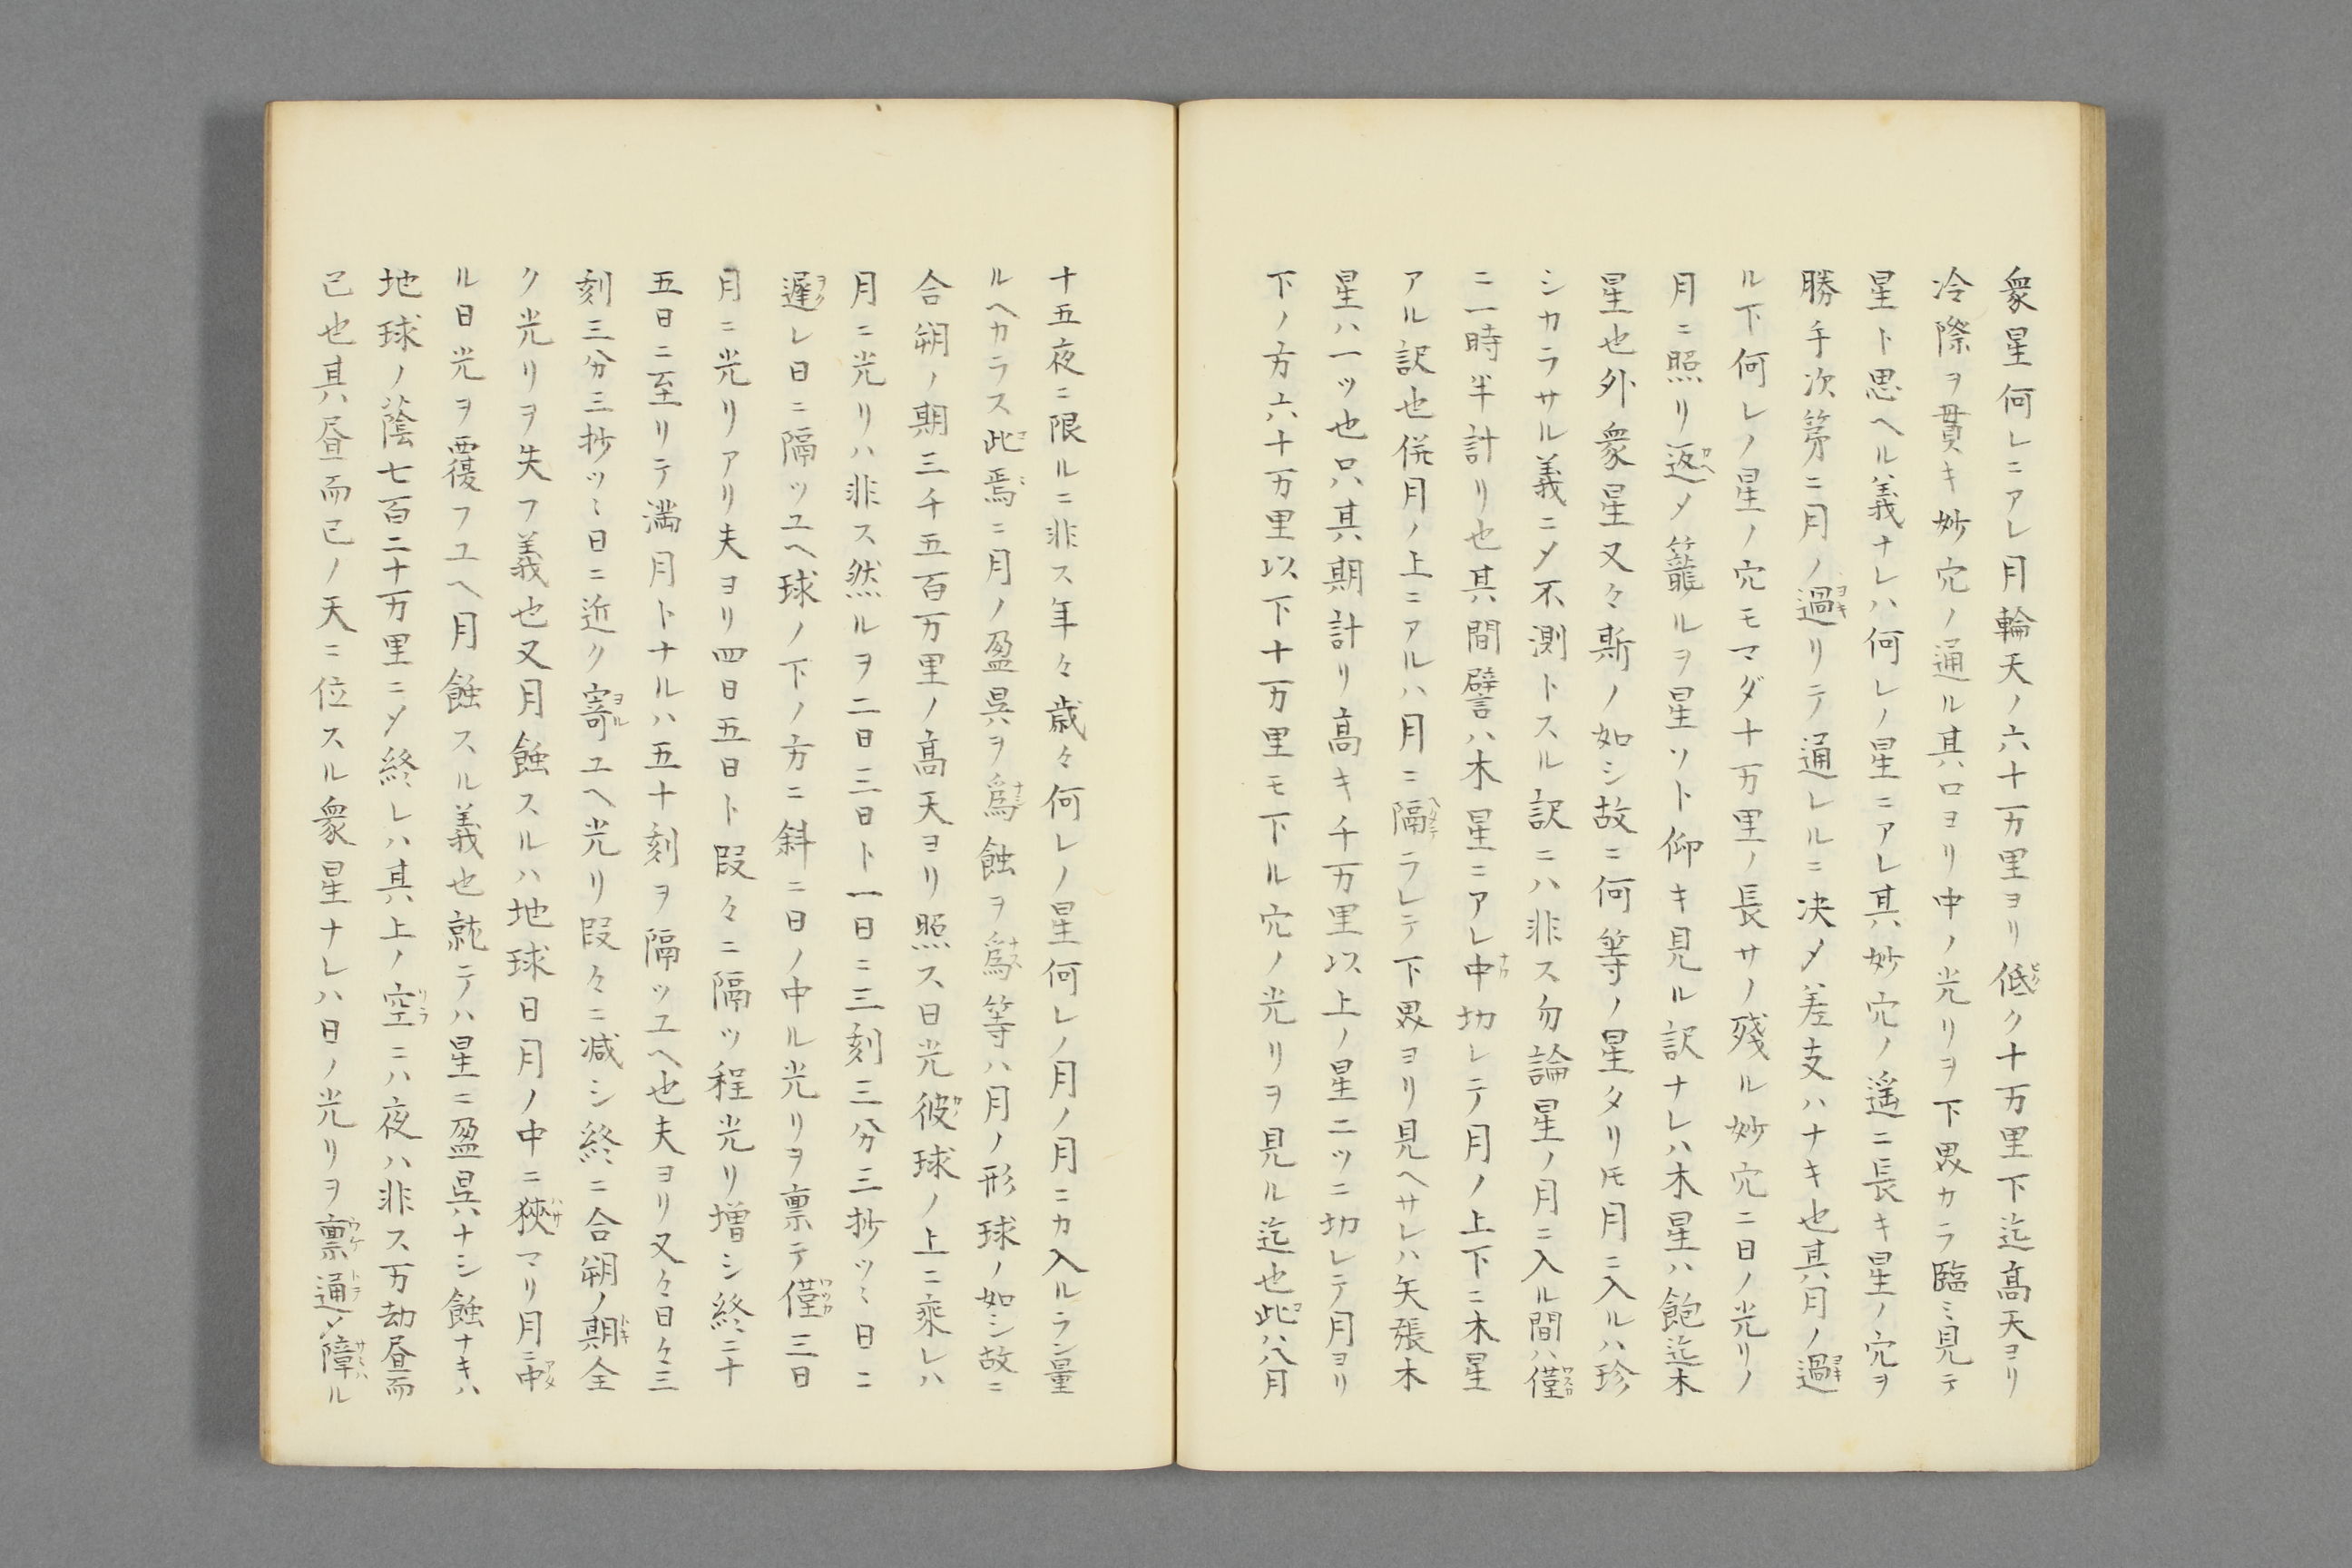 衆星何レニアレ月輪天ノ六十万里ヨリ低ク十万里下迄高天ヨリ
冷際ヲ貫キ妙穴ノ通ル其口ヨリ中ノ光リヲ下界カラ臨ミ見テ
星ト思ヘル義ナレハ何レノ星ニアレ其妙穴ノ遥ニ長キ星ノ穴ヲ
勝手次第ニ月ノ過リテ通レルニ决〆差支ハナキ也其月ノ過
ル下何レノ星ノ穴モマダ十万里ノ長サノ残ル妙穴ニ日ノ光リノ
月ニ照リ返〆籠ルヲ星ソト仰キ見ル訳ナレハ木星ハ飽迄木
星也外衆星又々斯ノ如シ故ニ何等ノ星タリ𪜈月ニ入ルハ珍
シカラサル義ニ〆不測トスル訳ニハ非ス勿論星ノ月ニ入ル間ハ僅
ニ一時半計リ也其間譬ハ木星ニアレ中切レテ月ノ上下ニ木星
アル訳也併月ノ上ニアルハ月ニ隔ラレテ下界ヨリ見ヘサレハ矢張木
星ハ一ツ也只其期計リ高キ千万里以上ノ星二ツニ切レテ月ヨリ
下ノ方六十万里以下十万里モ下ル穴ノ光リヲ見ル迄也此ハ八月
十五夜ニ限ルニ非ス年々歳々何レノ星何レノ月ノ月ニカ入ルラン量
ルヘカラス此焉ニ月ノ盈昃ヲ爲蝕ヲ爲等ハ月ノ形球ノ如シ故ニ
合朔ノ期三千五百万里ノ高天ヨリ照ス日光彼球ノ上ニ乗レハ
月ニ光リハ非ス然ルヲ二日三日ト一日ニ三刻三分三抄ツヽ日ニ
遅レ日ニ隔ツユヘ球ノ下ノ方ニ斜ニ日ノ中ル光リヲ禀テ僅三日
月ニ光リアリ夫ヨリ四日五日ト段々ニ隔ツ程光リ増シ終ニ十
五日ニ至リテ満月トナルハ五十刻ヲ隔ツユヘ也夫ヨリ又々日々三
刻三分三抄ツヽ日ニ近ク寄ユヘ光リ段々ニ减シ終ニ合朔ノ期全
ク光リヲ失フ義也又月蝕スルハ地球日月ノ中ニ狹マリ月ニ中
ル日光ヲ覆フユヘ月蝕スル義也就テハ星ニ盈昃ナシ蝕ナキハ
地球ノ蔭七百二十万里ニ〆終レハ其上ノ空ニハ夜ハ非ス万劫昼而
已也其ハ昼而已ノ天ニ位スル衆星ナレハ日ノ光リヲ禀通シ障ル